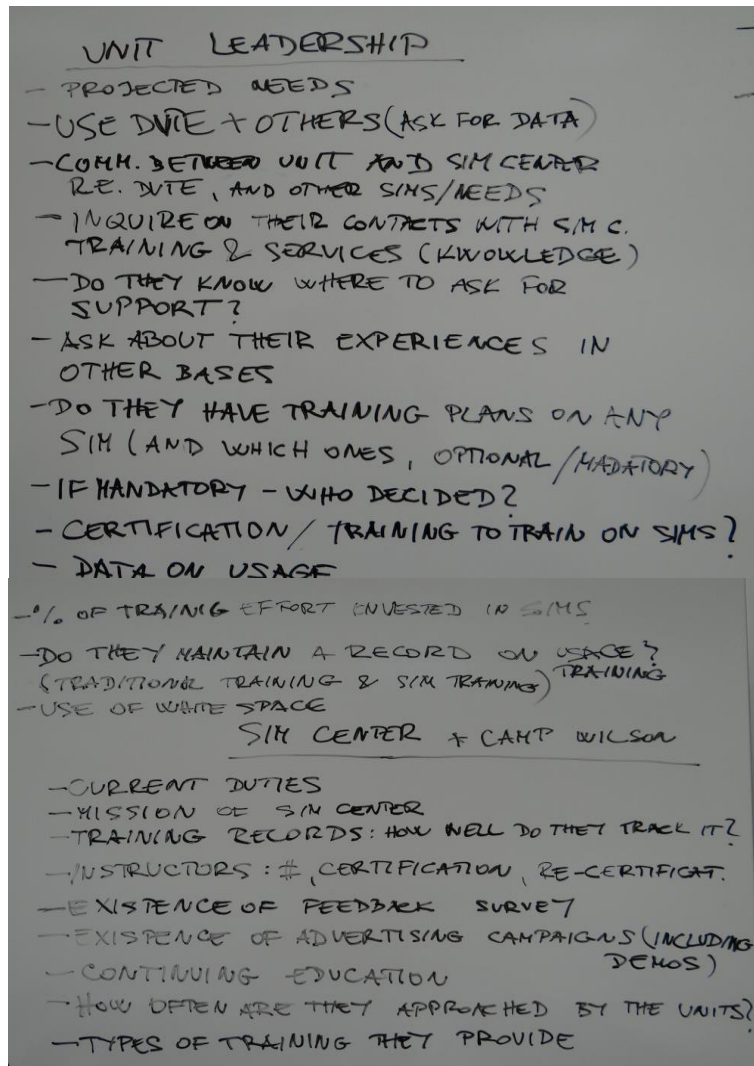 UNIT LEADERSHIP
- PROJECTED NEEDS
- USE DVTE + OTHERS (ASK FOR DATA)
- COMM. BETWEEN UNIT AND SIM CENTER
R.E. DVTE, AND OTHER SIMS/NEEDS
- INQUIRE ON THEIR CONTACTS WITH SIM C.
TRAINING & SERVICES (KWOWLEDGE)
- DO THEY KNOW WHERE TO ASK FOR
SUPPORT?
- ASK ABOUT THEIR EXPERIENCES IN
OTHER BASES
- DO THEY HAVE TRAINING PLANS ON ANY
SIM (AND WHICH ONES, OPTIONAL/MADATORY)
- IF MANDATORY - WHO DECIDED?
- CERTIFICATION/TRAINING TO TRAIN ON SIMS?
- DATA ON USAGE
- % OF TRAINIG EFFORT INVESTED IN SIMS
- DO THEY MAINTAIN A RECORD ON USAGE?
(TRADITIONAL TRAINING & SIM TRAINING) TRAINING
- USE OF WHITE SPACE
SIM CENTER + CAMP WILSON
- CURRENT DUTIES
- MISSION OF SIM CENTER
- TRAINING RECORDS: HOW WELL DO THEY TRACK IT?
- INSTRUCTORS: #, CERTIFICATION, RE-CERTIFICAT.
- EXISTENCE OF FEEDBACK SURVEY
- EXISTENCE OF ADVERTISING CAMPAIGNS (INCLUDING
DEMOS)
- CONTINUING EDUCATION
- HOW OFTEN ARE THEY APPROACHED BY THE UNITS?
- TYPES OF TRAINING THEY PROVIDE